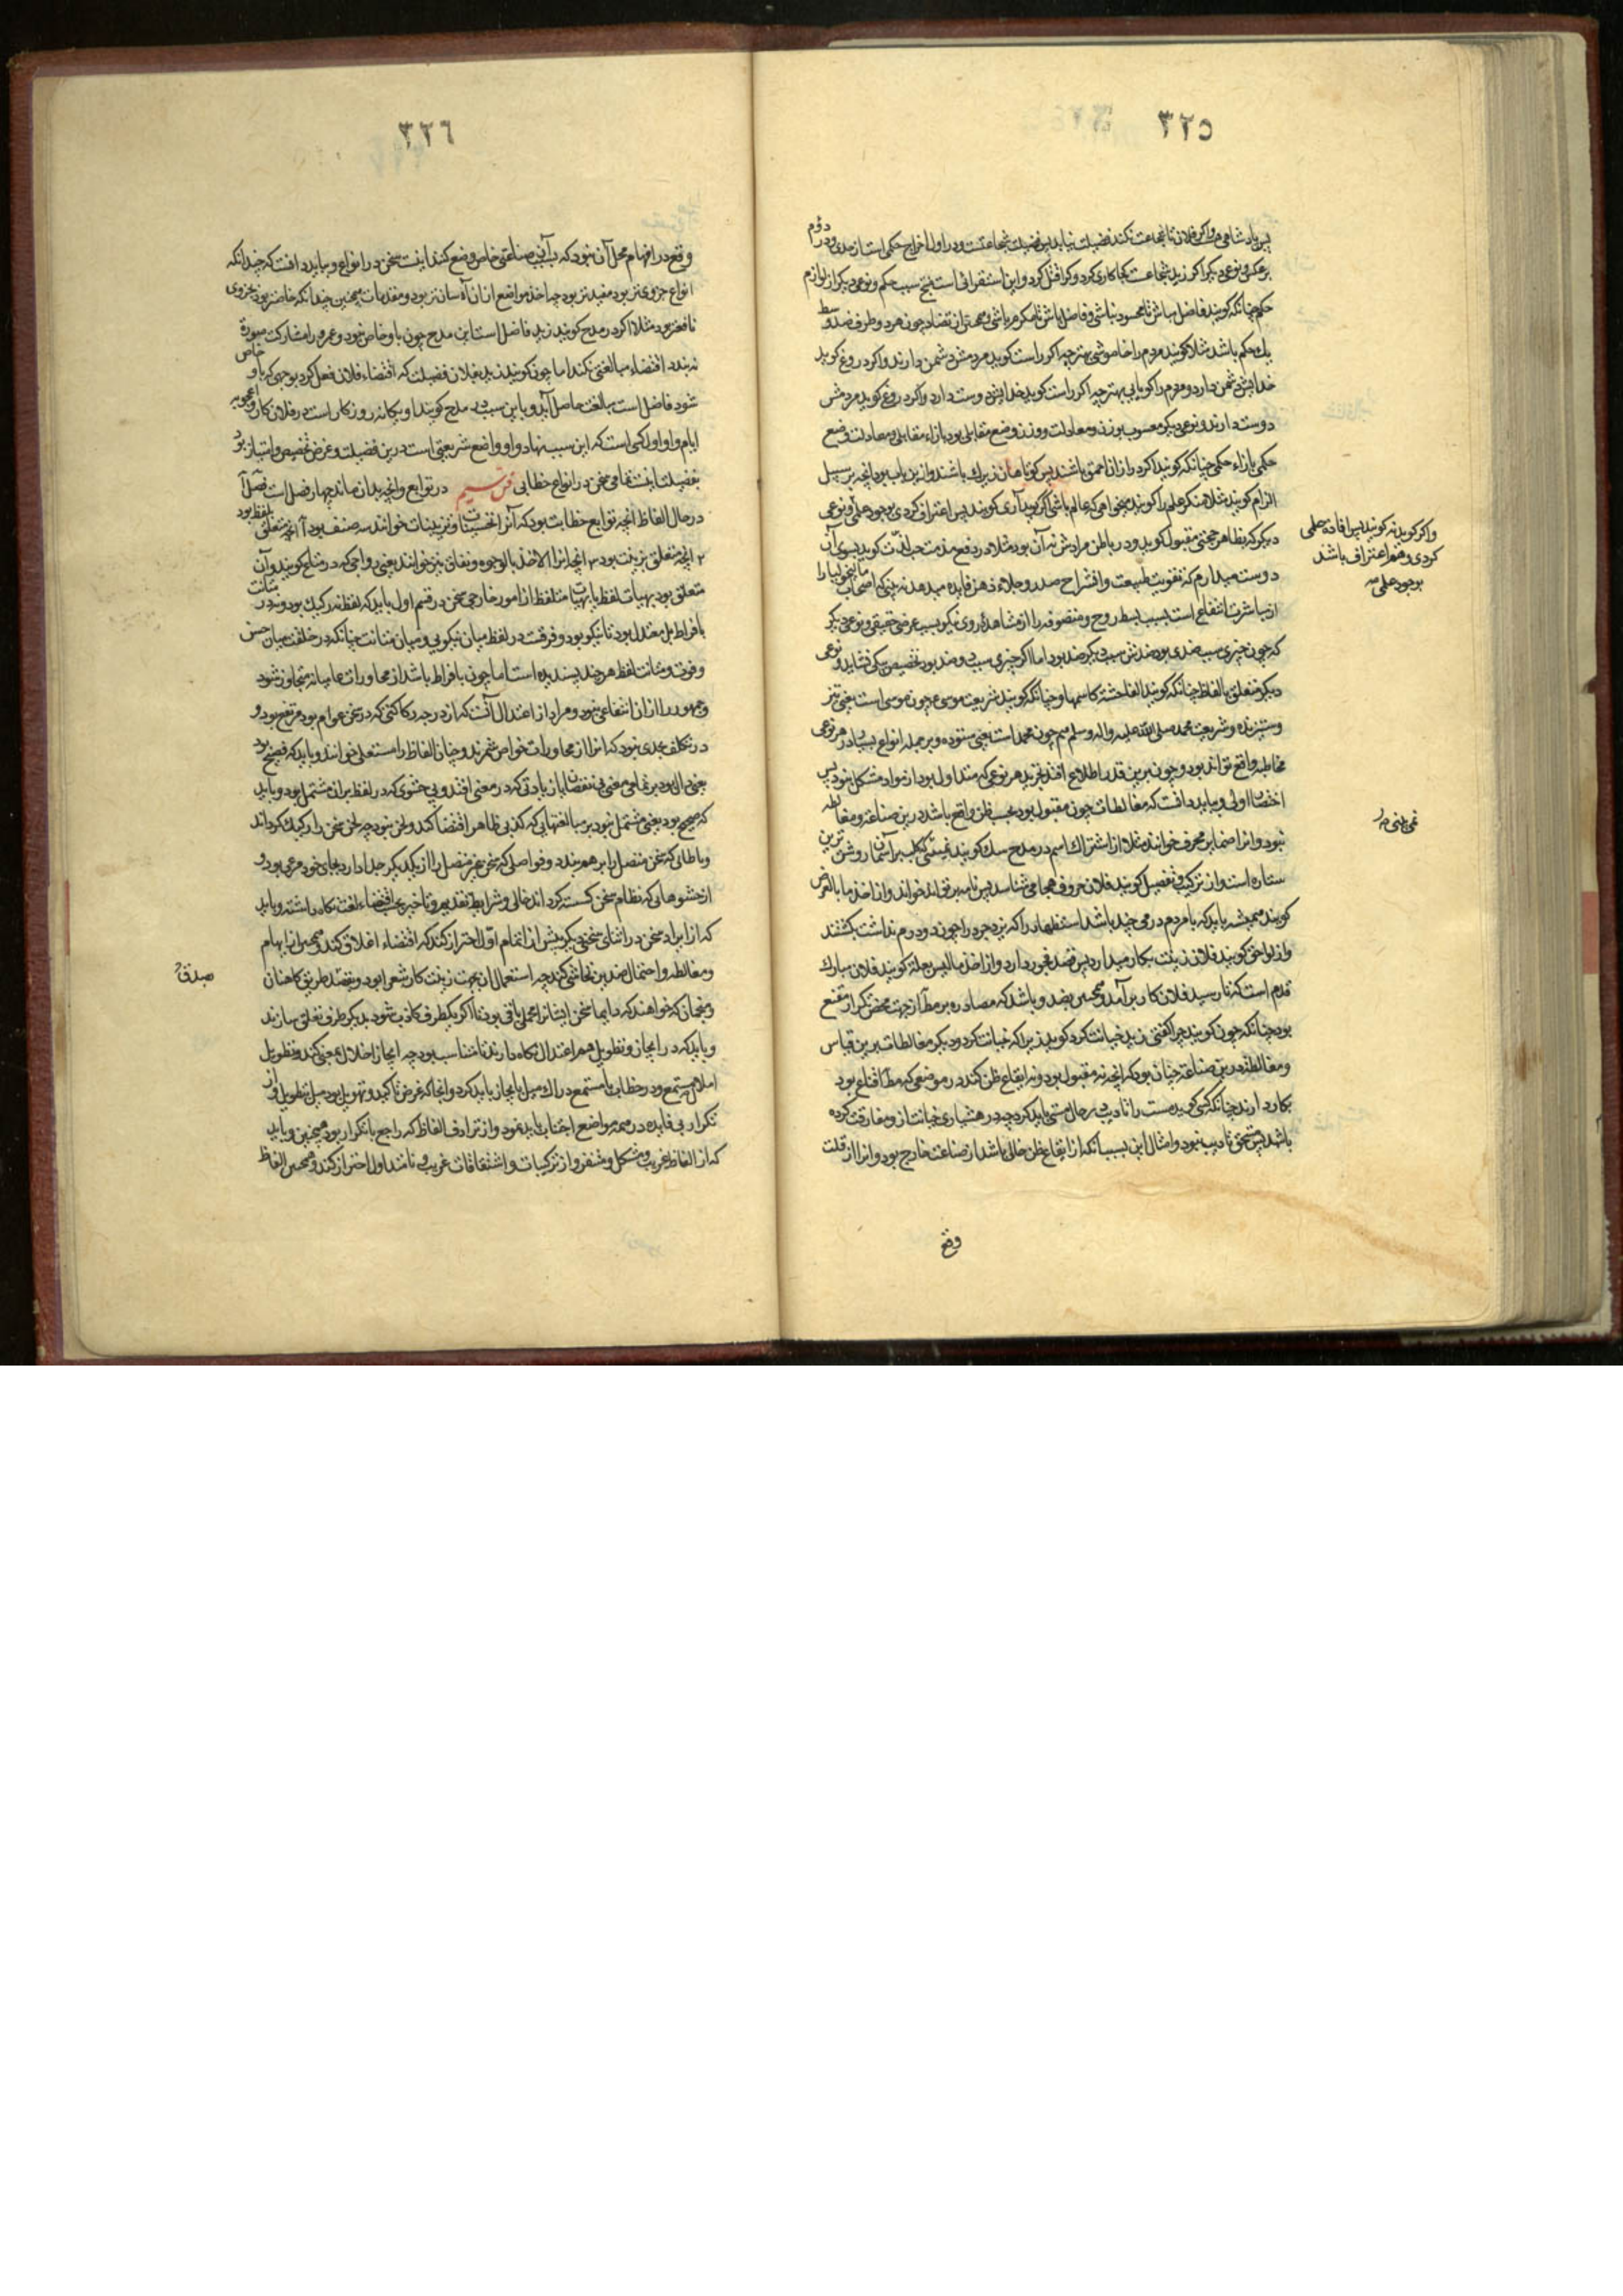 ٣٢٥
حکم چنانکه گویند فاضل مباش تا محسود نباشی و فاضل باش تا مکرم باشی و همچنین از تضاد چون هر دو طرف ضد وسط
یک حکم باشد مثلا گویند مردم را خاموشی بهتر چه اگر راست گوید مردمش دشمن دارند و اگر دروغ گوید
خدایش دشمن دارد و مردم را گویایی بهتر چه اگر راست گوید خدایش دوست دارد و اگر دروغ گوید مردمش
دوست دارند و نوعی دیگر منسوب بوزن و معادلت و وزن وضع مقابلی بود بازاء مقابلی و معادلت وضع
حکمی بازاء حکمی چنانکه گویند اگر درازان احمق باشند پس کوتاهان زیرک باشند و ازین باب بود آنچه بر سبیل
الزام گویند مثلا منکر علم را گویند میخواهی که عالم باشی اگر گوید آری گویند پس اعتراف کردی بوجود علم و نوعی
دیگر که بظاهر حجتی مقبول گوید و در باطن مرادش نه آن بود مثلا در دفع مذمت حب لذت گوید بسوی آن
دوست میدارم که تقویت طبیعت و انشراح صدر و جلاء ذهن فایده میدهد نه بینی که اصحاب مالیخولیا را
از مباشرت انتفاع است بسبب بسط روح و متصوفه را از مشاهده روی نیکو بسبب عرضی حقیقی و نوعی دیگر
که چون چیزی سبب ضدی بود ضدش سبب دیگر ضد بود اما اگر چیزی سبب دو ضد بود تخصیص بیکی نشاید و نوعی
دیگر متعلق بالفاظ چنانکه گویند الفاحشة کاسمها و چنانکه گویند شریعت موسی ع چون موسی است یعنی تیز
و ستیزنده و شریعت محمد صلی الله علیه واله وسلم هم چون محمد است یعنی ستوده و بر جمله انواع بسیار در هر نوعی
مخاطبه واقع تواند بود و چون برین قدر اطلاع افتد تجرید هر نوعی که متداول بود از مواد مشکل نبود پس
اختصار اولی و بباید دانست که مغالطات چون مقبول بود بحسب ظن واقع باشد درین صناعة و مغالطه
نبود و آنرا ضمایر محرف خوانند مثلا از اشتراک اسم در مدح سگ گویند نمی بینی که کلب بر آسمان روشن ترین
ستاره است و از ترکیب و تفصیل گویند فلان حروف هجا می شناسد پس نامه بر تواند خواند و از اخذ ما بالعرض
گویند همیشه باید که با مردم درمی چند باشد استظهار را که یزدجرد را چون دو درم نداشت بکشتند
و از لواحق گویند فلان زینت بکار میدارد پس قصد فجور دارد و از اخذ ما لیس بعلة گویند فلان مبارک
قدم است که تا رسید فلان کار بر آمد و همچنین بضد و باشد که مصادره بر مطلوب از جهت محض تکرار مقنع
بود چنانکه چون گویند چرا گفتی زید خیانت کرد گوید زیرا که خیانت کرد و دیگر مغالطات برین قیاس
و مغالطه درین صناعة چنان بود که آنچه نه مقبول بود و نه ایقاع ظن کند در موضعی که مظ اقناع بود
بکار دارند چنانکه کسی گوید مست را تادیب بر حال مستی باید کرد چه در هشیاری خیانت از و مفارقت کرده
باشد پس مستحق تادیب نبود و امثال این بسبب آنکه از ایقاع ظن خالی باشد از صناعت خارج بود و آنرا از قلت
وقع
و اگر گوید نه گویند پس افاده علمی
کردی و هم اعتراف باشد
بوجود علم صه
نمی بینی صه
٣٢٦
وقع در افهام محل آن نبود که بآن صناعتی خاص وضع کنند اینست سخن در انواع و بباید دانست که چندانکه
انواع جزوی تر بود مفید تر بود چه اخذ مواضع از آن آسان تر بود و مقدمات همچنین چندانکه خاص تر بود جزوی
نافع تر بود مثلا اگر در مدح گویند زید فاضل است این مدح چون باو خاص نبود و عمرو را مشارکت صورة
نه بندد اقتضاء مبالغتی نکند اما چون گویند زید بفلان فضیلت که اقتضاء فلان فعل کرد بوجهی که باو خاص
شود فاضل است مبالغت حاصل آید و باین سبب در مدح گویند او یگانه روزگار است در فلان کار و اعجوبه
ایام و او اول کسی است که این سبب نهاد و او واضع شریعتی است درین فضیلت و غرض تخصیص و امتیاز بود
بفضیلت اینست تمامی سخن در انواع خطابی فن سیم در توابع و آنچه بدان ماند چهار فصل است فصل آ
در حال الفاظ آنچه توابع خطابت بود که آنرا تحسینات و تزیینات خوانند سه صنف بود آ آنچه متعلق بلفظ بود
٢ آنچه متعلق بترتیب بود ٣ آنچه آنرا الاخذ بالوجوه و نفاق نیز خوانند یعنی رواجی که در متاع گویند و آن
متعلق بود بهیآت لفظ یا بهیآت متلفظ از امور خارجی سخن در قسم اول باید که لفظ نه رکیک بود و نه در متانت
بافراط بل معتدل بود تا نیکو بود و فرقست در لفظ میان نیکویی و میان متانت چنانکه در خلقت میان حسن
و قوت و متانت لفظ هر چند پسندیده است اما چون بافراط باشد از محاورات عامیانه متجاوز شود
و جمهور را از آن انتفاعی نبود و مراد از اعتدال آنست که از درجه رکاکتی که در سخن عوام بود مرتفع بود و
در تکلف بحدی نبود که آنرا از محاورات خواص شمرند و چنان الفاظ را مستعلی خوانند و باید که فصیح بود
یعنی دال بود بر تمامی معنی بی نقصان یا زیادتی که در معنی افتد و بی حشوی که در لفظ بر آن مشتمل بود و باید
که صحیح بود یعنی مشتمل نبود بر مبالغتهایی که کذبی ظاهر اقتضا کند و لحن نبود چه لحن سخن را رکیک گرداند
و رباطاتی که سخن متصل را بر هم بندد و فواصلی که سخن غیر متصل را از یکدیگر جدا دارد بجای خود مرعی بود و
از حشوهایی که نظام سخن گسسته گرداند خالی و شرایط تقدیم و تاخیر بحسب اقتضاء لغت نگاه داشته و باید
که از ایراد سخن در اثنای سخنی دیگر پیش از اتمام اول احتراز کند که اقتضاء اغلاق کند و همچنین از ایهام
و مغالطه و احتمال ضدین تحاشی کند چه استعمال آن بجهت زینت کار شعرا بود و بقصد طریق کاهنان
و منجمان که خواهند که دایما سخن ایشان را محملی باقی بود تا اگر یکطرف کاذب شود بدیگر طرف تعلق سازند
و باید که در ایجاز و تطویل هم اعتدال نگاه دارند تا متناسب بود چه ایجاز اخلال بمعنی کند و تطویل
املال مستمع و در خطاب با مستمع دراک میل بایجاز باید کرد و آنجا که غرض تاکید و تهویل بود میل بتطویل و از
تکرار بی فایده در همه مواضع اجتناب باید نمود و از ترادف الفاظ که راجع با تکرار بود همچنین و باید
که از الفاظ غریب و مشکل و منفر و از ترکیبات و اشتقاقات غریب و نامتداول احتراز کند و همچنین الفاظ
صدق